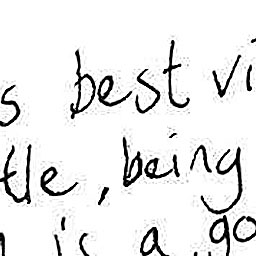 s best vi
tle, being
is a go